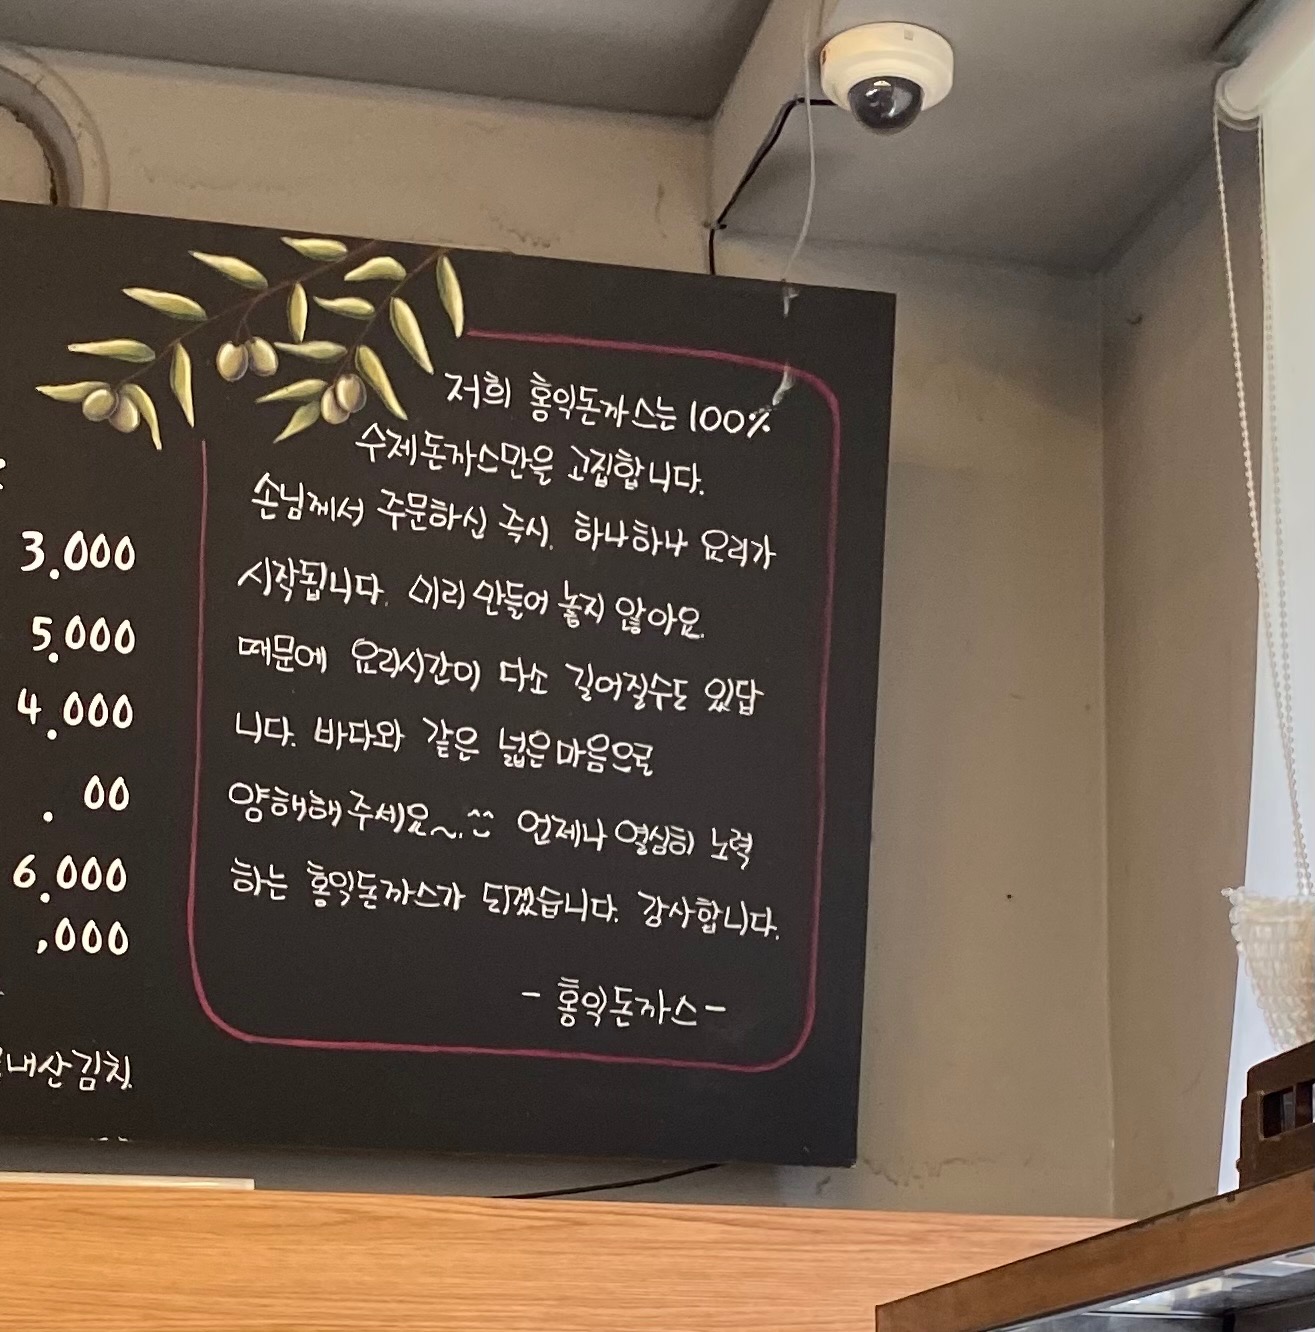 3.000
5.000
4.000
. 00
6.000
,000
내산김치
저희 홍익돈까스는 100%
수제돈까스만을 고집합니다.
손님께서 주문하신 즉시. 하나하나 요리가
시작됩니다. 미리 만들어 놓지 않아요.
때문에 요리시간이 다소 길어질수도 있답
니다. 바다와 같은 넓은마음으로
양해해주세요~.^^ 언제나 열심히 노력
하는 홍익돈까스가 되겠습니다. 감사합니다.
- 홍익돈까스 -